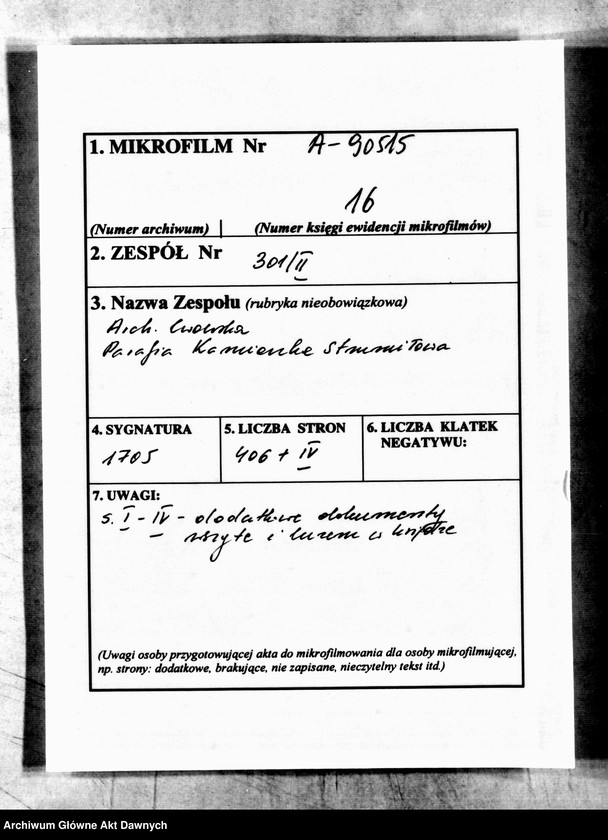 1. MIKROFILM Nr A-90515
16
(Numer archiwum) (Numer księgi ewidencji mikrofilmów)
2. ZESPÓŁ Nr 301/II
3. Nazwa Zespołu (rubryka nieobowiązkowa)
Arch. Lwowska
Parafia Kamionka Strumiłowa
4. SYGNATURA 5. LICZBA STRON 6. LICZBA KLATEK
NEGATYWU:
1705 406 + IV
7. UWAGI:
s. I - IV - dodatkowe dokumenty
wszyte i luzem w księdze
(Uwagi osoby przygotowującej akta do mikrofilmowania dla osoby mikrofilmującej,
np. strony: dodatkowe, brakujące, nie zapisane, nieczytelny tekst itd.)
Archiwum Główne Akt Dawnych